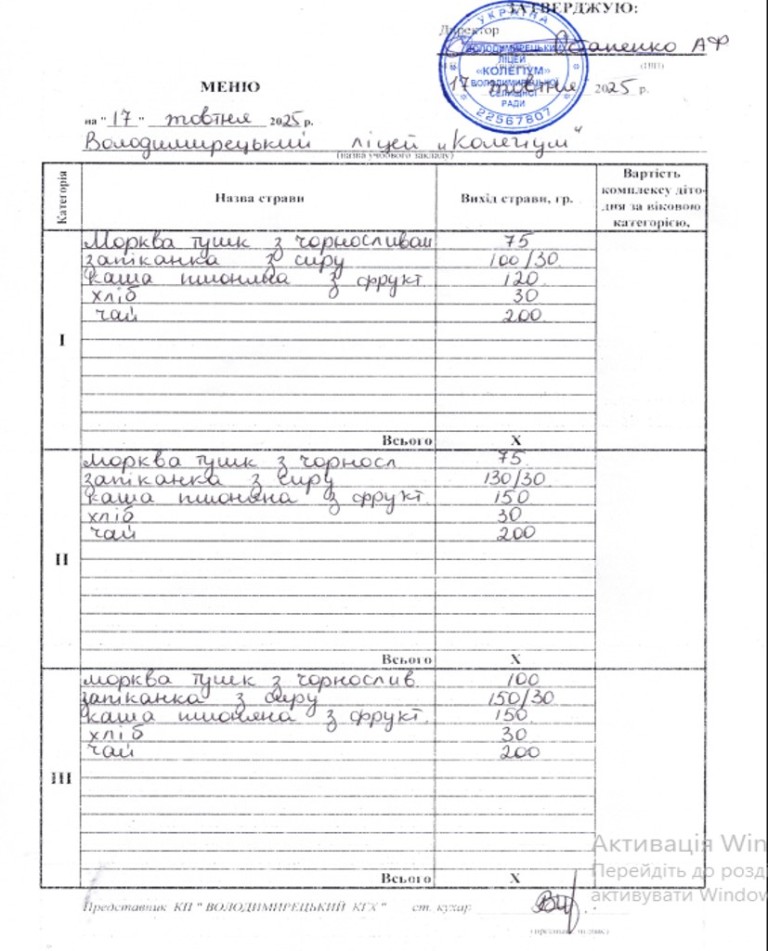 ЗАТВЕРДЖУЮ:
Директор
Остапенко А Ф
(ПІП)
17 жовтня 2025 р.
УКРАЇНА
ВОЛОДИМИРЕЦЬКИЙ
ЛІЦЕЙ
«КОЛЕГІУМ»
ВОЛОДИМИРЕЦЬКОЇ
СЕЛИЩНОЇ
РАДИ
22567807
МЕНЮ
на "17" жовтня 2025 р.
Володимирецький ліцей „Колегіум"
(назва учбового закладу)
Категорія Назва страви Вихід страви, гр. Вартість комплексу діто-дня за віковою категорією,
I
Морква тушк з чорносливом 75
запіканка з сиру 100/30
каша пшоняна з фрукт 120
хліб 30
чай 200
Всього X
II
морква тушк з чорносл 75
запіканка з сиру 130/30
каша пшоняна з фрукт. 150
хліб 30
чай 200
Всього X
III
морква тушк з чорнослив 100
запіканка з сиру 150/30
каша пшоняна з фрукт. 150
хліб 30
чай 200
Всього X
Представник КП "ВОЛОДИМИРЕЦЬКИЙ КГХ" ст. кухар
Активація Win
Перейдіть до розд
активувати Window